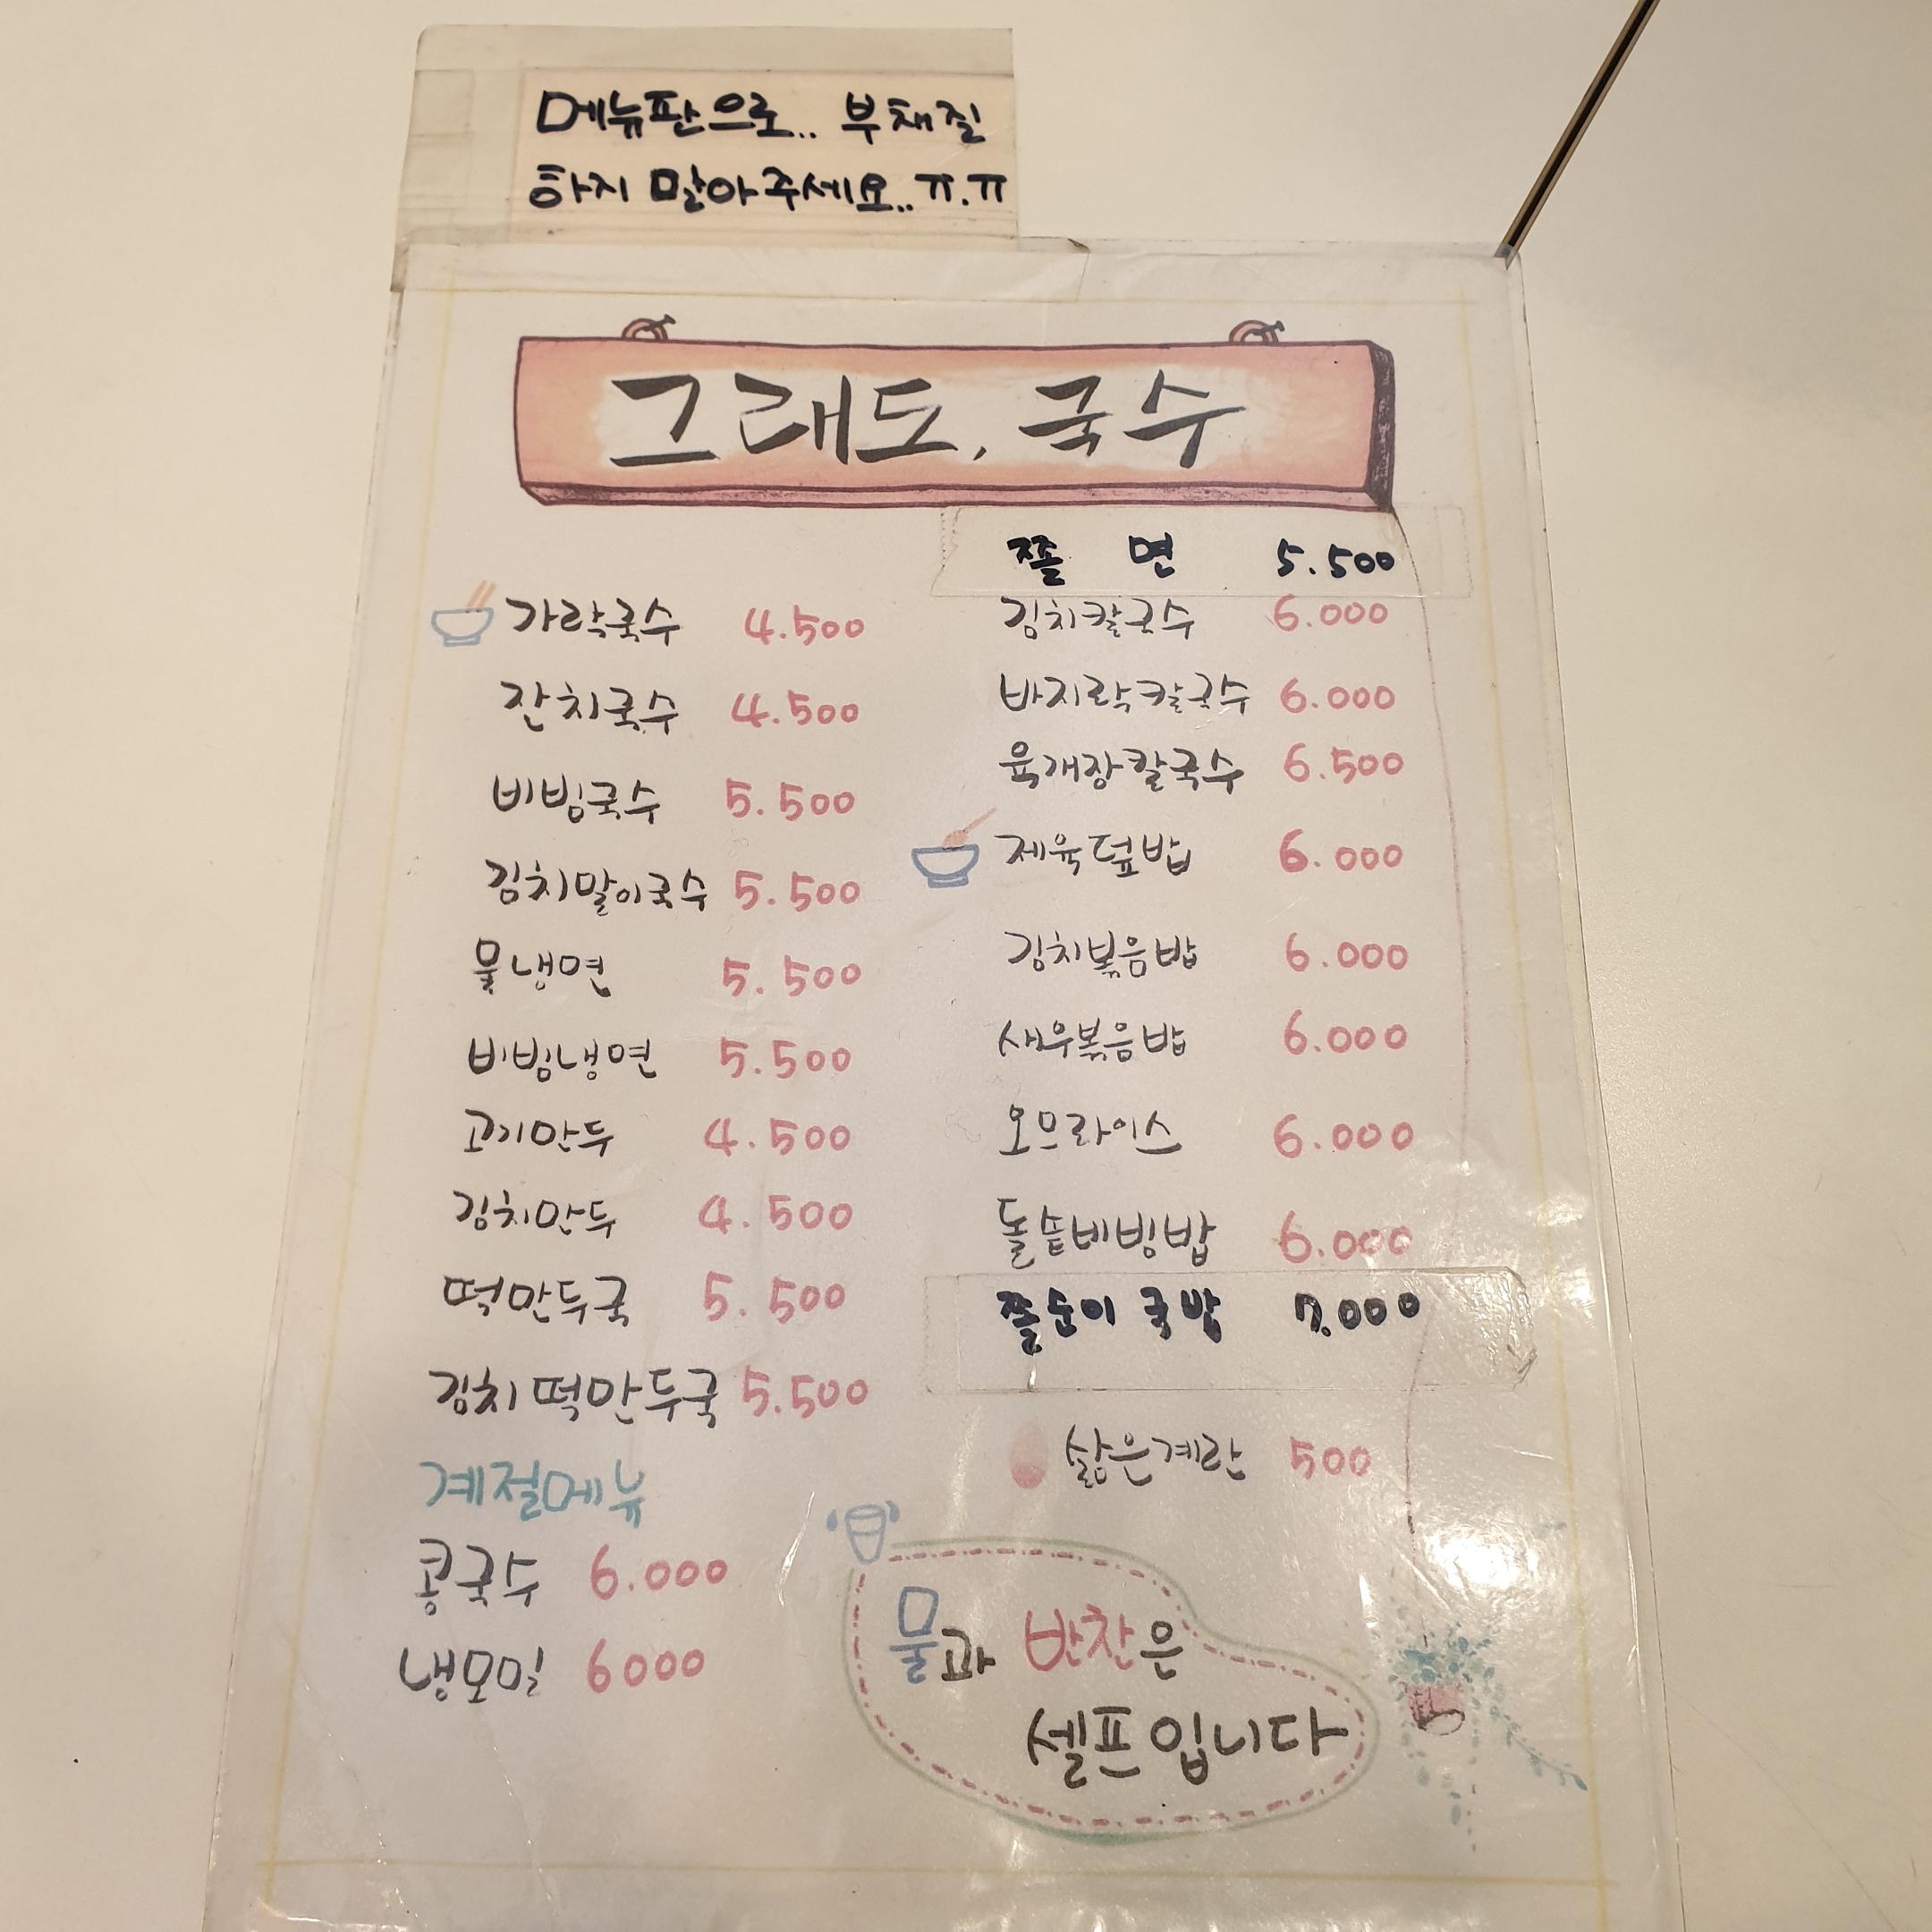 메뉴판으로.. 부채질
하지 말아주세요..ㅠ.ㅠ
그래도, 국수
가락국수 4.500
잔치국수 4.500
비빔국수 5.500
김치말이국수 5.500
물냉면 5.500
비빔냉면 5.500
고기만두 4.500
김치만두 4.500
떡만두국 5.500
김치떡만두국 5.500
계절메뉴
콩국수 6.000
냉모밀 6000
쫄 면 5.500
김치칼국수 6.000
바지락칼국수 6.000
육개장칼국수 6.500
제육덮밥 6.000
김치볶음밥 6.000
새우볶음밥 6.000
오므라이스 6.000
돌솥비빔밥 6.000
쫄순이 국밥 7.000
삶은계란 500
물과 반찬은
셀프입니다